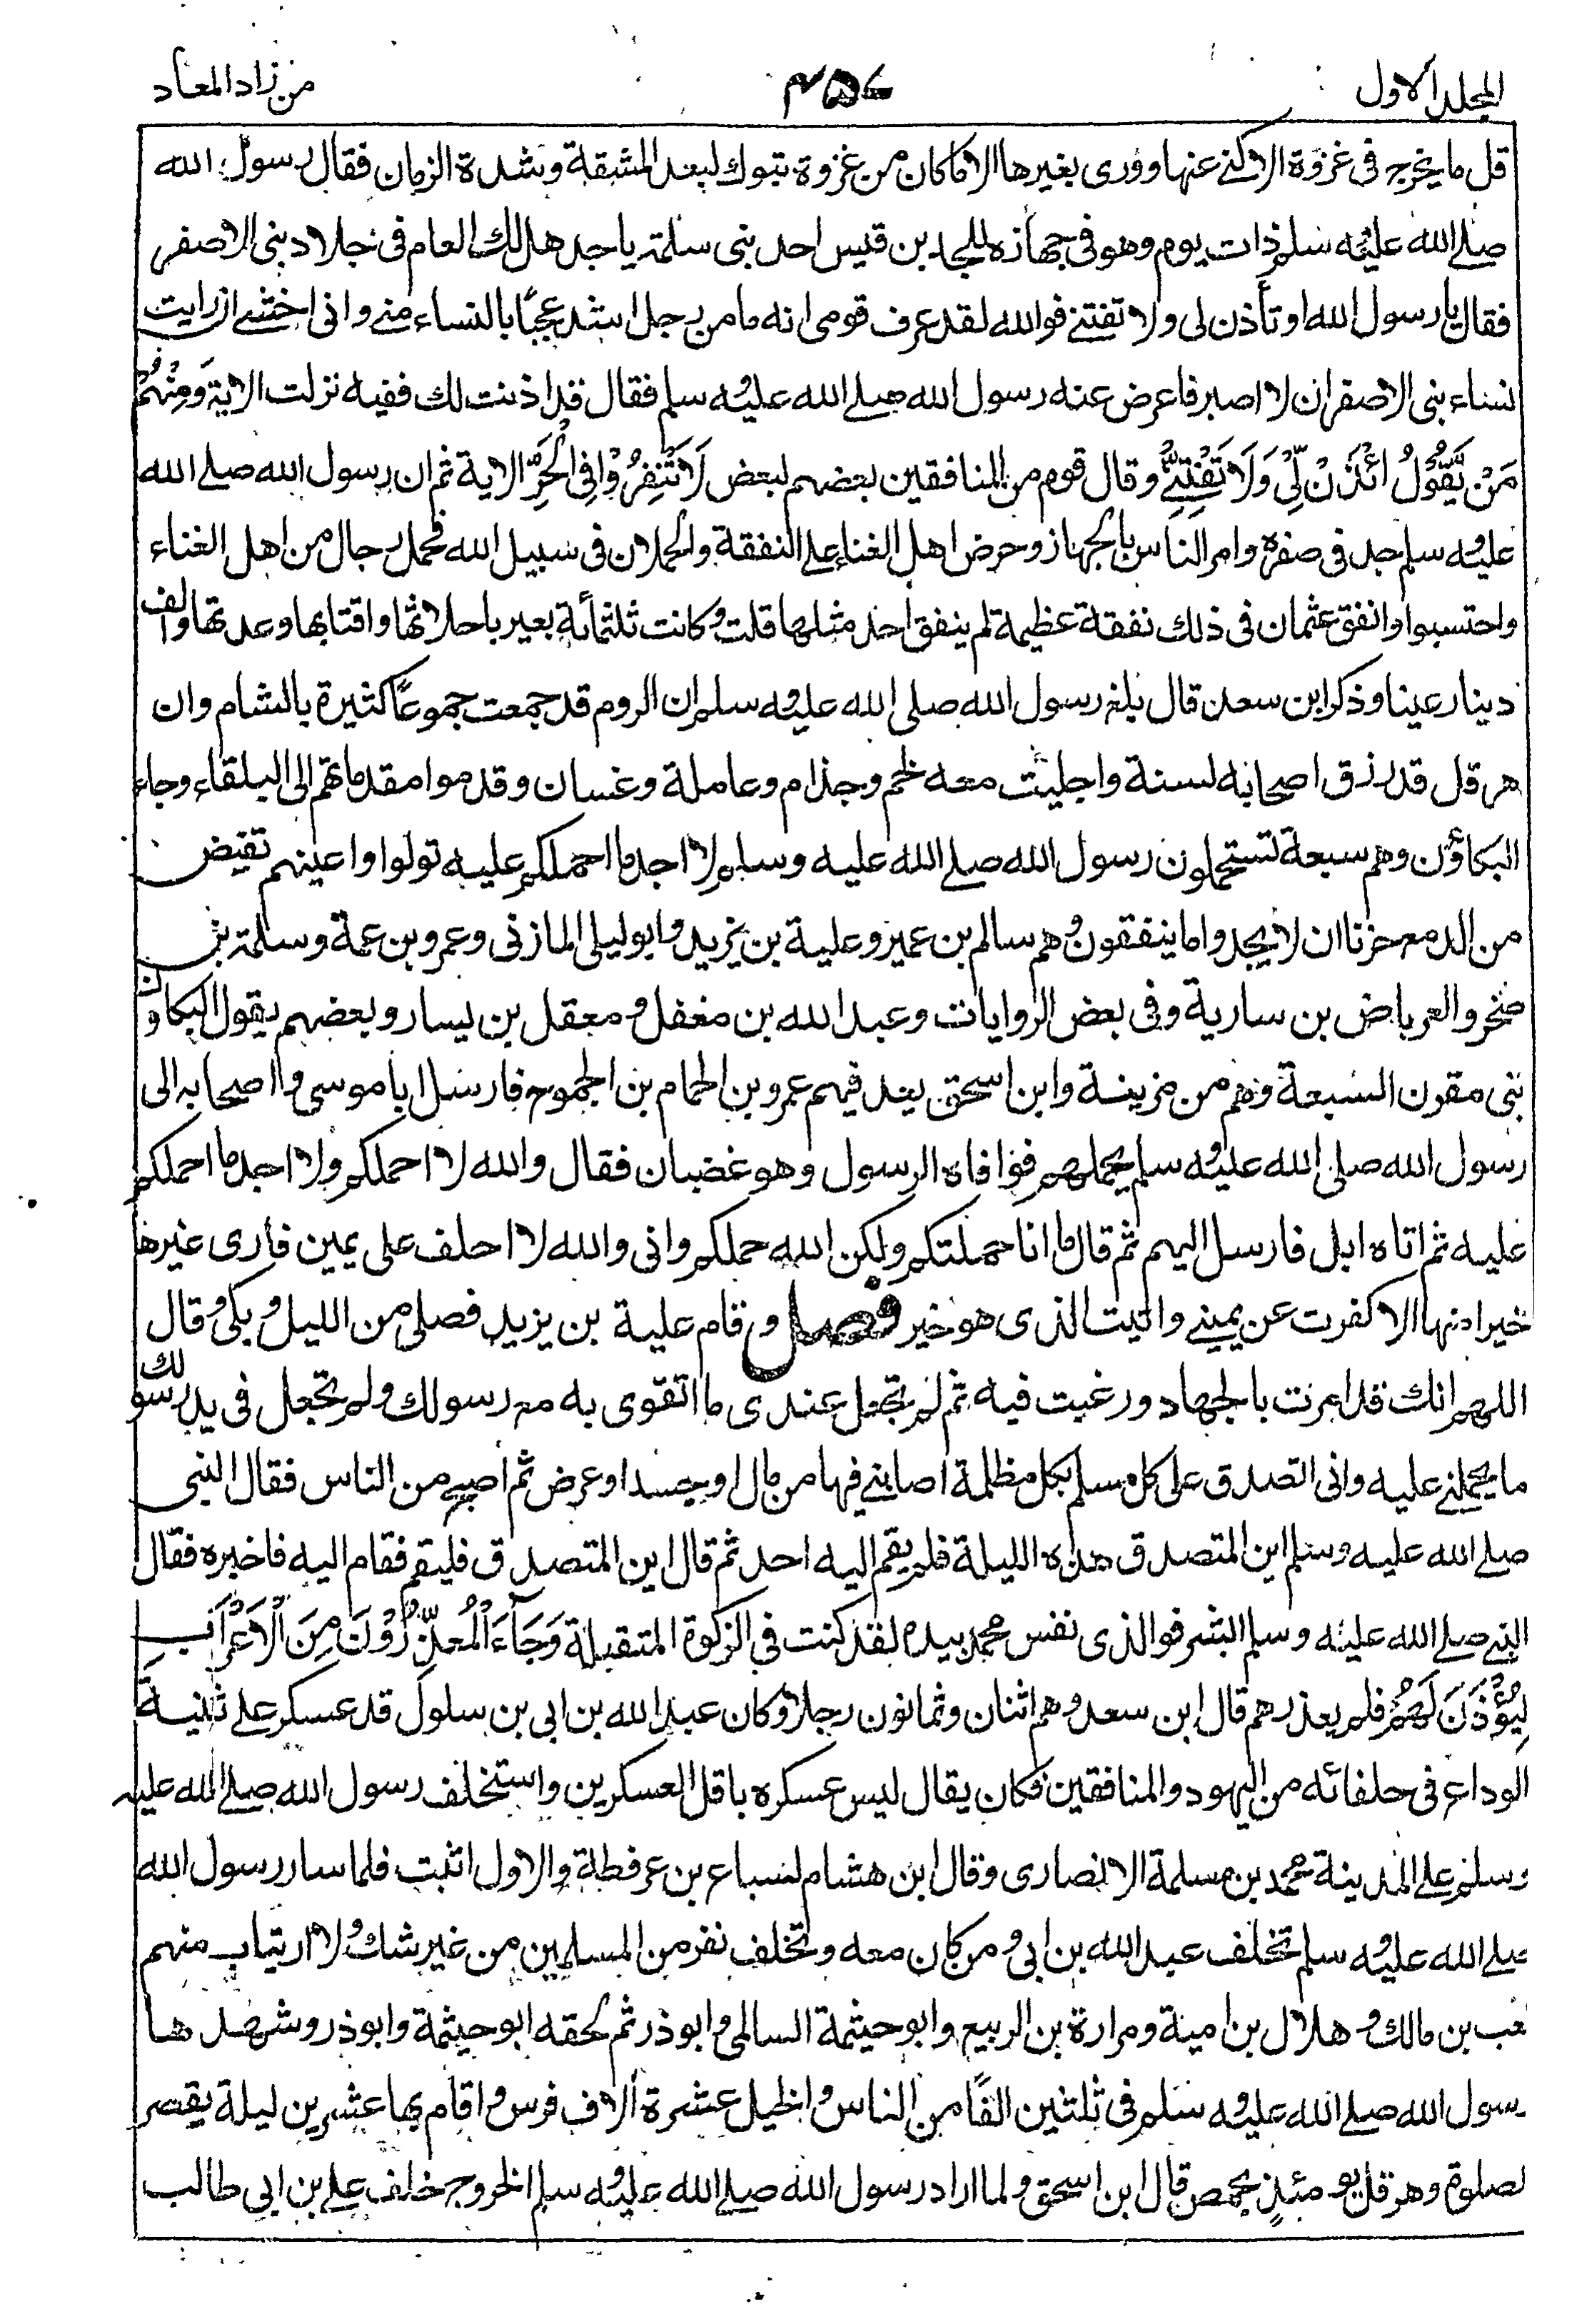 المجلد الاول
۴۵۷
من زاد المعاد
قل ما يخرج فى غزوة الا كنے عنها وورى بغيرها الا ما كان من غزوة تبوك لبعد المشقة وشدة الزمان فقال رسول الله
صلے الله عليه وسلم ذات يوم وهو فى جهازه للجد بن قيس احد بنى سلمة يا جد هل لك العام فى جلاد بنى الاصفر
فقال يا رسول الله او تأذن لى ولا تفتنے فوالله لقد عرف قومى انه ما من رجل اشد عجبًا بالنساء منے وانى اخشے ان رايت
نساء بنى الاصفر ان لا اصبر فاعرض عنه رسول الله صلے الله عليه وسلم فقال قد اذنت لك ففيه نزلت الاية وَمِنْهُمْ
مَنْ يَّقُوْلُ ائْذَنْ لِّىْ وَلَا تَفْتِنِّےْ وقال قوم من المنافقين بعضهم لبعض لَا تَنْفِرُوْا فِى الْحَرِّ الاية ثم ان رسول الله صلے الله
عليه وسلم جد فى صفره وامر الناس بالجهاز وحرض اهل الغناء على النفقة والحملان فى سبيل الله فحمل رجال من اهل الغناء
واحتسبوا وانفق عثمان فى ذلك نفقة عظيمة لم ينفق احد مثلها قلت وكانت ثلثمأئة بعير باحلاثها واقتابها وعدتها والف
دينار عينا وذكر ابن سعد قال بلغ رسول الله صلى الله عليه وسلم ان الروم قد جمعت جموعًا كثيرة بالشام وان
هرقل قد رزق اصحابه لسنة واجلبت معه لخم وجذام وعاملة وغسان وقدموا مقدماتهم الى البلقاء وجاء
البكاؤن وهم سبعة تستحملون رسول الله صلے الله عليه وسلم لا اجد ما احملكم عليه تولوا واعينهم تفيض
من الدمع حزنا ان لا يجدوا ما ينفقون وهم سالم بن عمير وعلية بن يزيد وابو ليلى المازنى وعمرو بن عمة وسلمة بن
صخر والعرباض بن سارية وفى بعض الروايات وعبد الله بن مغفل ومعقل بن يسار وبعضهم يقول البكاون
بنى مقرن السبعة وهم من مزينة وابن اسحق يعد فيهم عمرو بن الحمام بن الجموح فارسل ابا موسى واصحابه الى
رسول الله صلى الله عليه وسلم يحملهم فوافاه الرسول وهو غضبان فقال والله لا احملكم ولا اجد ما احملكم
عليه ثم اتاه ابل فارسل اليهم ثم قال ما انا حملتكم ولكن الله حملكم وانى والله لا احلف على يمين فارى غيرها
خيرا منها الا كفرت عن يمينے واتيت الذى هو خير فصل وقام علية بن يزيد فصلى من الليل وبكى وقال
اللهم انك قد امرت بالجهاد ورغبت فيه ثم لم تجعل عندى ما اتقوى به مع رسولك ولم تجعل فى يد رسولك
ما يحملنے عليه وانى اتصدق على كل مسلم بكل مظلمة اصابنے فيها من مال او جسد او عرض ثم اصبح من الناس فقال النبى
صلے الله عليه وسلم اين المتصدق هذه الليلة فلم يقم اليه احد ثم قال اين المتصدق فليقم فقام اليه فاخبره فقال
النبے صلے الله عليه وسلم ابشر فوالذى نفس محمد بيده لقد كنت فى الزكوة المتقبلة وَجَآءَ الْمُعَذِّرُوْنَ مِنَ الْاَعْرَابِ
لِيُؤْذَنَ لَهُمْ فلم يعذرهم قال ابن سعد وهم اثنان وثمانون رجلا وكان عبد الله بن ابى بن سلول قد عسكر على ثنية
الوداع فى حلفائه من اليهود والمنافقين فكان يقال ليس عسكره باقل العسكرين واستخلف رسول الله صلے الله عليه
وسلم على المدينة محمد بن مسلمة الانصارى وقال ابن هشام لسباع بن عرفطة والاول اثبت فلما سار رسول الله
صلے الله عليه وسلم تخلف عبد الله بن ابى ومن كان معه وتخلف نفر من المسلمين من غير شك ولا ارتياب منهم
عب بن مالك وهلال بن امية ومرارة بن الربيع وابو حيثمة السالمى وابو ذر ثم لحقه ابو حيثمة وابوذر وشهدها
رسول الله صلے الله عليه وسلم فى ثلثين الفًا من الناس والخيل عشرة الاف فرس واقام بها عشرين ليلة يقصر
لصلوة وهرقل يومئذٍ بحمص قال ابن اسحق ولما اراد رسول الله صلے الله عليه وسلم الخروج خلف على بن ابى طالب